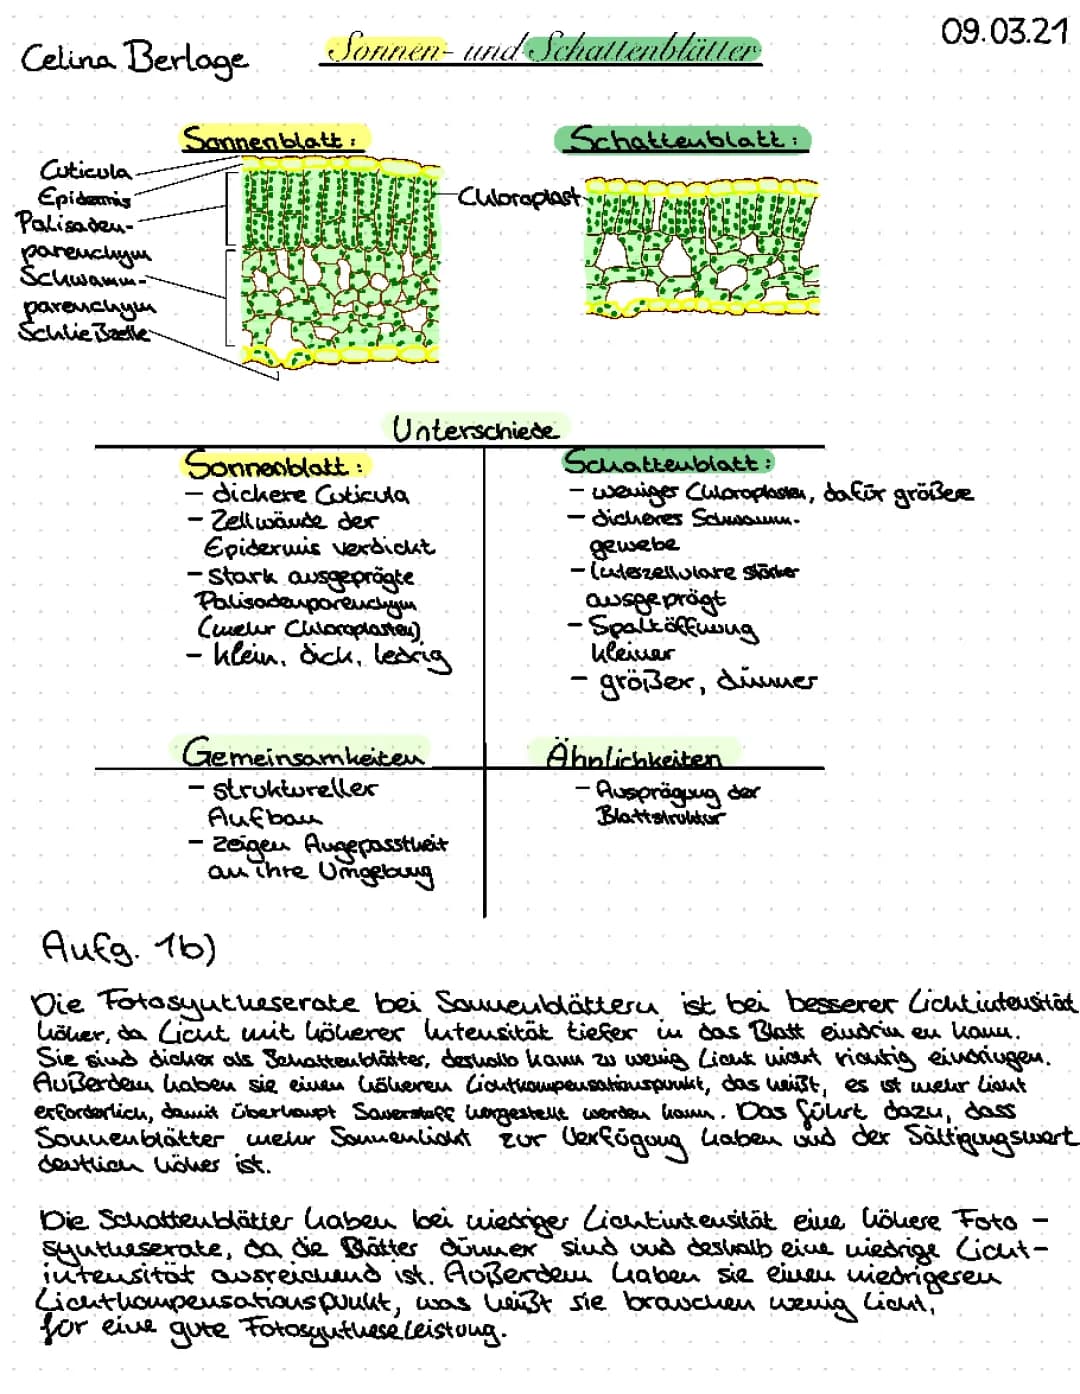 09.03.21
Celina Berlage
Sonnen- und Schattenblätter
Sonnenblatt:
Schattenblatt:
Cuticula
Epidermis
Palisaden-
parenchym
Schwamm-
parenchym
Schließzelle
Chloroplast
Unterschiede
Sonnenblatt:
- dickere Cuticula
- Zellwände der
Epidermis verdickt
- stark ausgeprägte
Palisadenparenchym
(mehr Chloroplasten)
- klein, dick, ledrig
Schattenblatt:
- weniger Chloroplasten, dafür größere
- dickeres Schwamm-
gewebe
- Interzellulare stärker
ausgeprägt
- Spaltöffnung
kleiner
- größer, dünner
Gemeinsamkeiten
- struktureller
Aufbau
- zeigen Angepasstheit
an ihre Umgebung
Ähnlichkeiten
- Ausprägung der
Blattstruktur
Aufg. 1b)
Die Fotosyntheserate bei Sonnenblättern ist bei besserer Lichtintensität
höher, da Licht mit höherer Intensität tiefer in das Blatt eindrin en kann.
Sie sind dicker als Schattenblätter, deshalb kann zu wenig Licht nicht richtig eindringen.
Außerdem haben sie einen höheren Lichtkompensationspunkt, das heißt, es ist mehr Licht
erforderlich, damit überhaupt Sauerstoff hergestellt werden kann. Das führt dazu, dass
Sonnenblätter mehr Sonnenlicht zur Verfügung haben und der Sättigungswert
deutlich höher ist.
Die Schattenblätter haben bei niedriger Lichtintensität eine höhere Foto-
syntheserate, da die Blätter dünner sind und deshalb eine niedrige Licht-
intensität ausreichend ist. Außerdem haben sie einen niedrigeren
Lichtkompensationspunkt, was heißt sie brauchen wenig Licht,
für eine gute Fotosyntheseleistung.